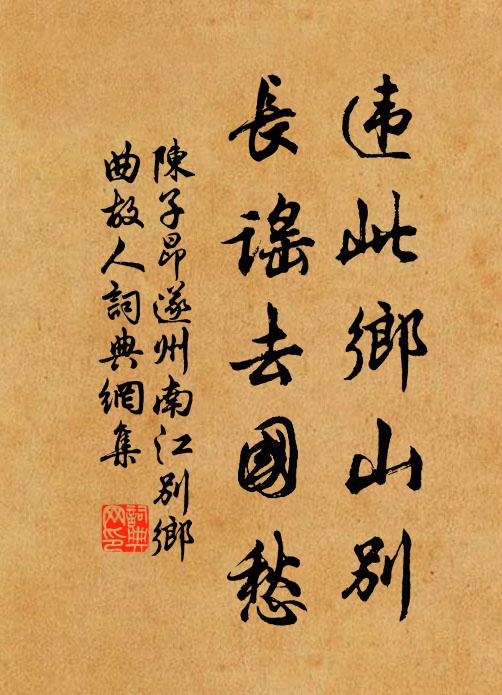 违此鄉山別
長謠去國愁
陳子昂遂州南江別鄉
曲故人詞典網集
詞典
网印